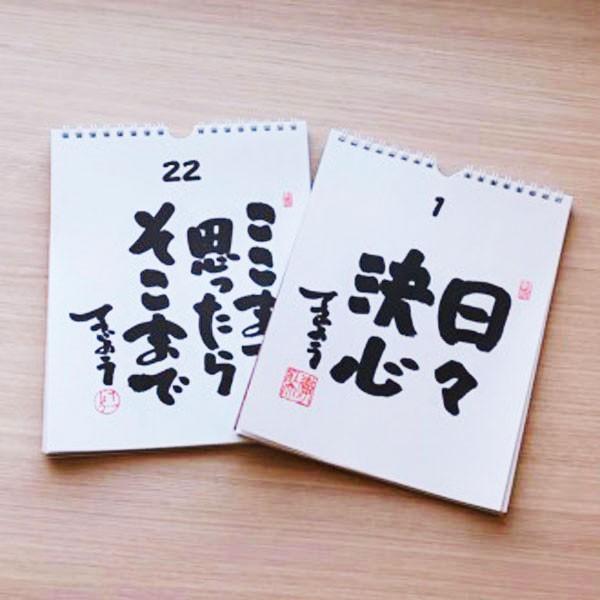 22
ここま
思ったら
そこまで
1
日々
決心